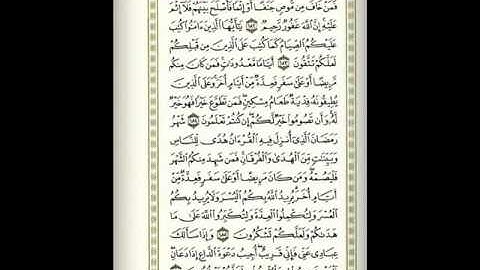 فَمَنْ خَافَ مِن مُّوصٍ جَنَفًا أَوْ إِثْمًا فَأَصْلَحَ بَيْنَهُمْ فَلَآ إِثْمَ
عَلَيْهِ إِنَّ ٱللَّهَ غَفُورٌ رَّحِيمٌ ١٨٢ يَٰٓأَيُّهَا ٱلَّذِينَ ءَامَنُوا۟ كُتِبَ
عَلَيْكُمُ ٱلصِّيَامُ كَمَا كُتِبَ عَلَى ٱلَّذِينَ مِن قَبْلِكُمْ
لَعَلَّكُمْ تَتَّقُونَ ١٨٣ أَيَّامًا مَّعْدُودَٰتٍ فَمَن كَانَ مِنكُم
مَّرِيضًا أَوْ عَلَىٰ سَفَرٍ فَعِدَّةٌ مِّنْ أَيَّامٍ أُخَرَ وَعَلَى ٱلَّذِينَ
يُطِيقُونَهُۥ فِدْيَةٌ طَعَامُ مِسْكِينٍ فَمَن تَطَوَّعَ خَيْرًا فَهُوَ خَيْرٌ
لَّهُۥ وَأَن تَصُومُوا۟ خَيْرٌ لَّكُمْ إِن كُنتُمْ تَعْلَمُونَ ١٨٤ شَهْرُ
رَمَضَانَ ٱلَّذِىٓ أُنزِلَ فِيهِ ٱلْقُرْءَانُ هُدًى لِّلنَّاسِ
وَبَيِّنَٰتٍ مِّنَ ٱلْهُدَىٰ وَٱلْفُرْقَانِ فَمَن شَهِدَ مِنكُمُ ٱلشَّهْرَ
فَلْيَصُمْهُ وَمَن كَانَ مَرِيضًا أَوْ عَلَىٰ سَفَرٍ فَعِدَّةٌ مِّنْ
أَيَّامٍ أُخَرَ يُرِيدُ ٱللَّهُ بِكُمُ ٱلْيُسْرَ وَلَا يُرِيدُ بِكُمُ
ٱلْعُسْرَ وَلِتُكْمِلُوا۟ ٱلْعِدَّةَ وَلِتُكَبِّرُوا۟ ٱللَّهَ عَلَىٰ مَا
هَدَىٰكُمْ وَلَعَلَّكُمْ تَشْكُرُونَ ١٨٥ وَإِذَا سَأَلَكَ
عِبَادِى عَنِّى فَإِنِّى قَرِيبٌ أُجِيبُ دَعْوَةَ ٱلدَّاعِ إِذَا دَعَانِ